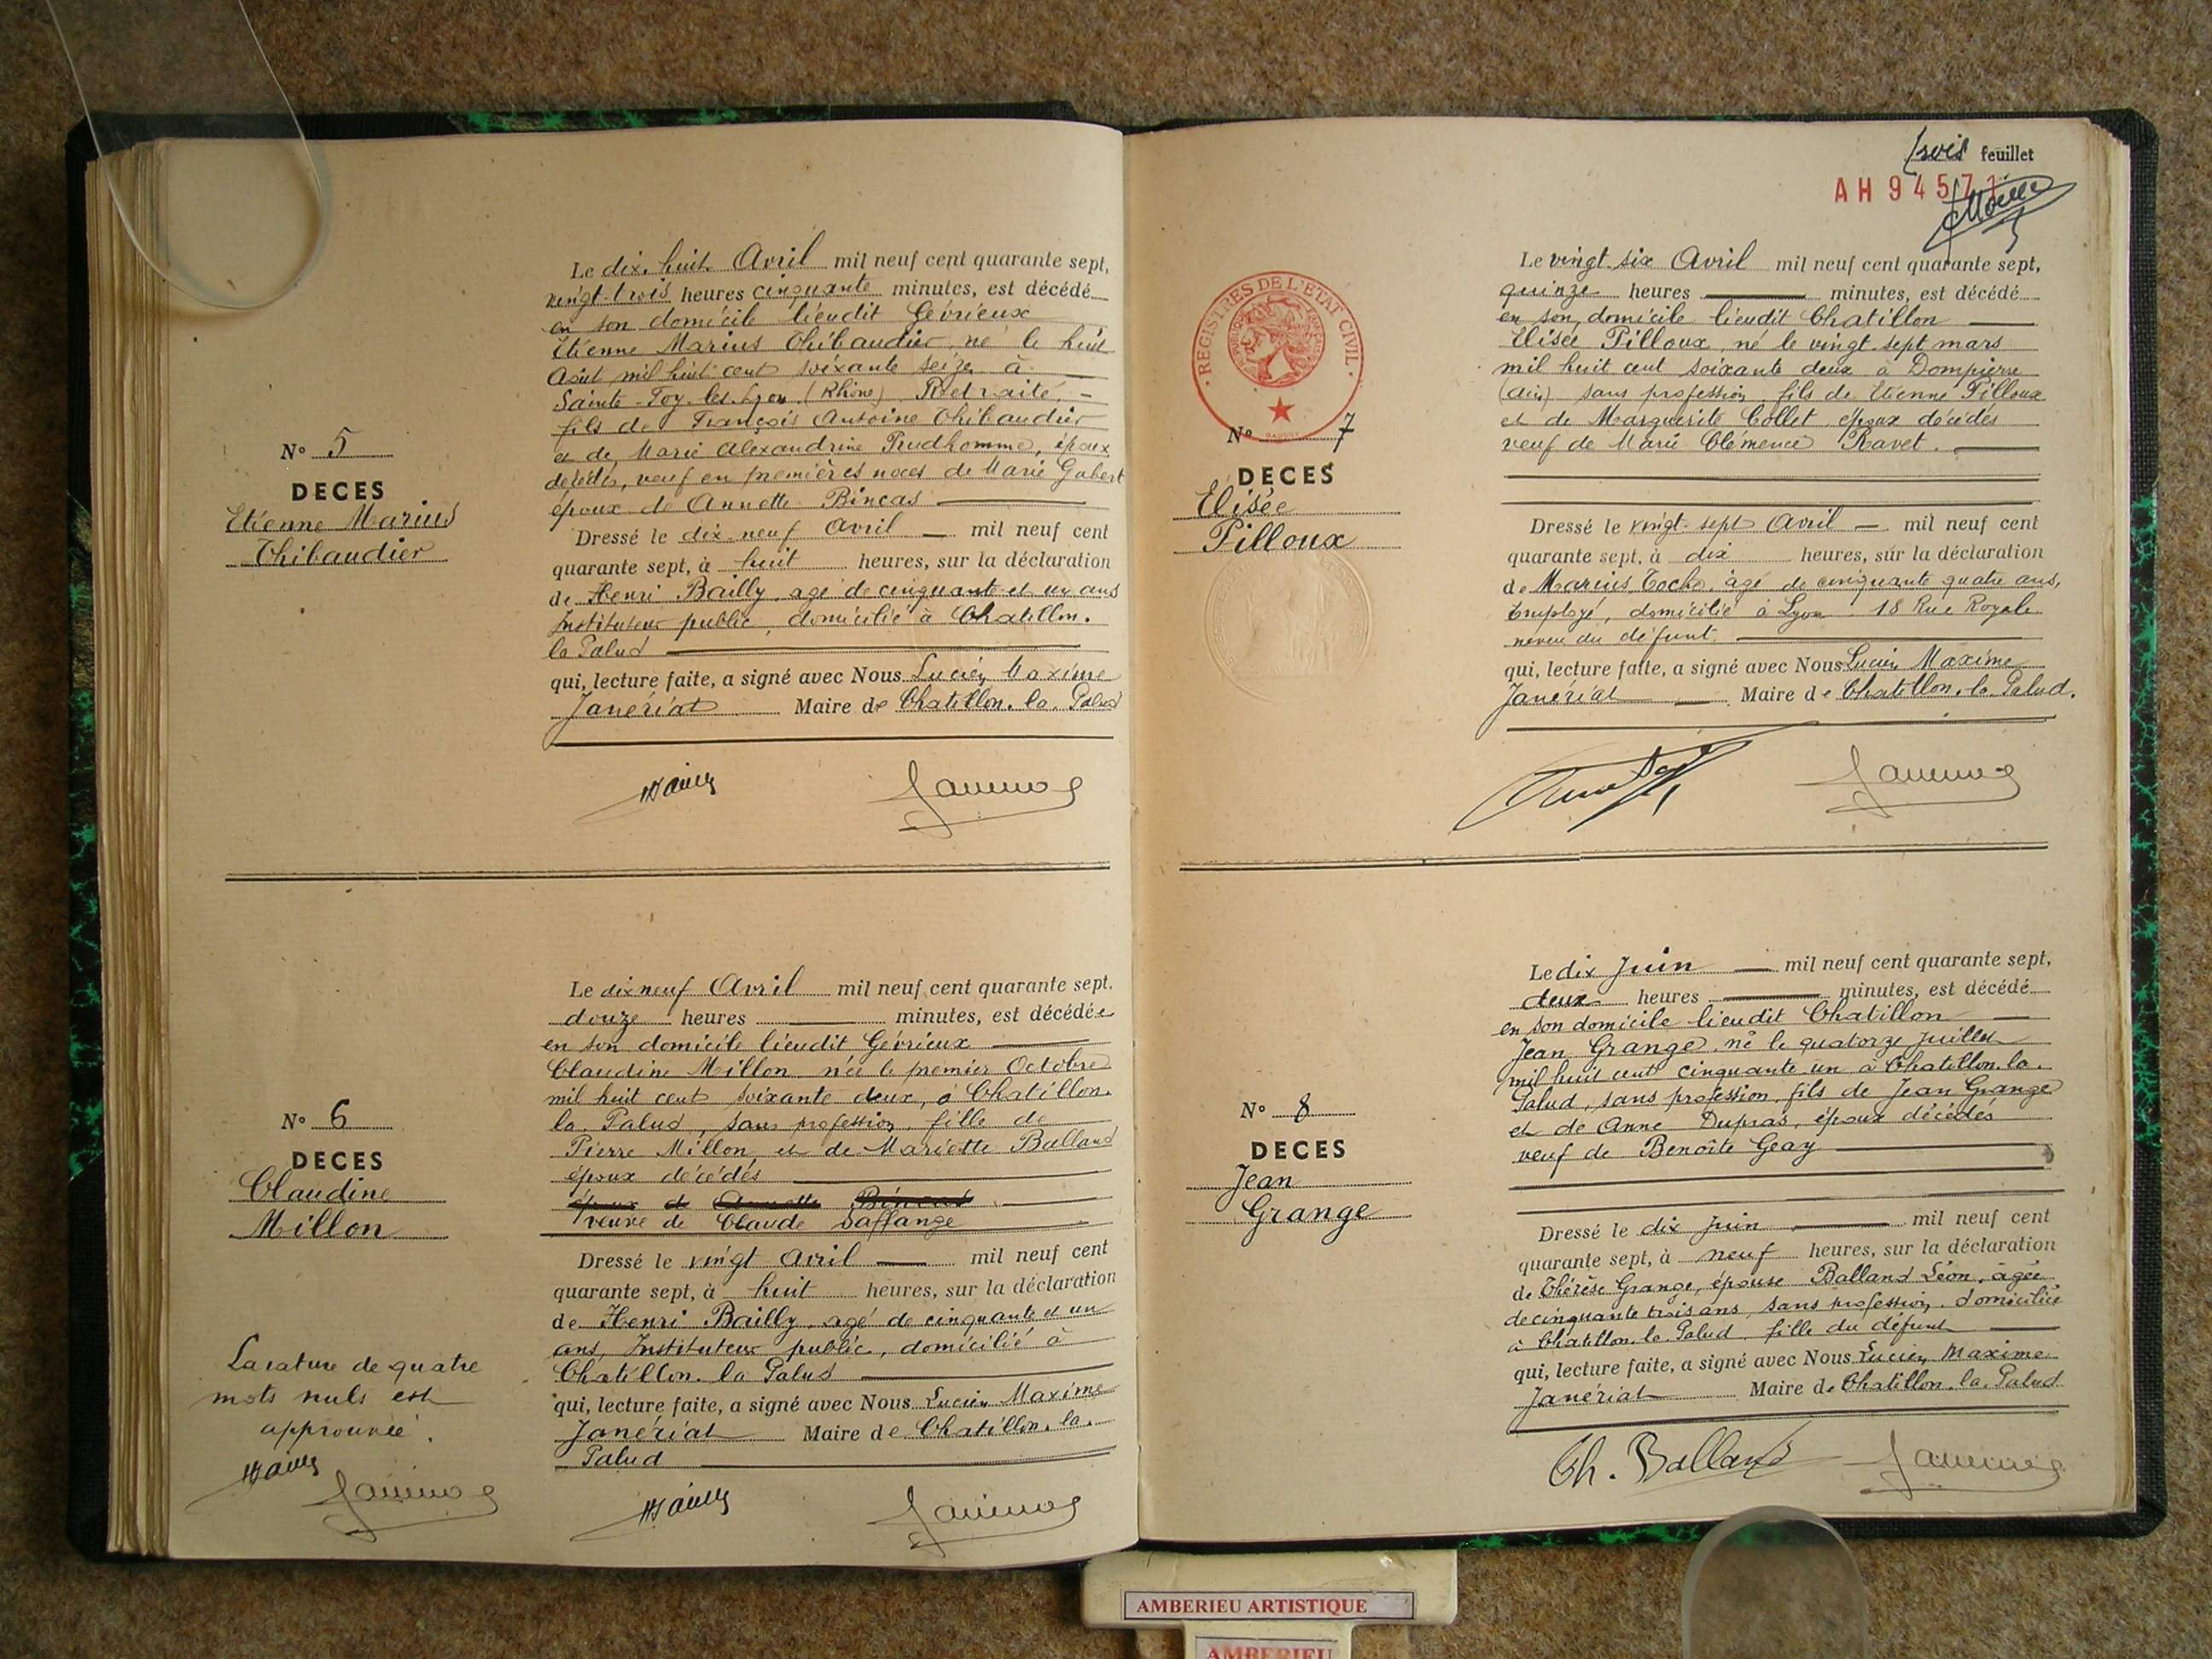 Le dix. huit Avril mil neuf cent quarante sept,
vingt-trois heures cinquante minutes, est décédé
en son domicile lieudit Gévrieux
Etienne Marius Thibaudier, né le huit
Août mil huit cent soixante seize à
Sainte-Foy-les-Lyon (Rhône) Retraité,
fils de François Antoine Thibaudier
et de Marie Alexandrine Prudhomme, époux
décédés, veuf en premières noces de Marie Gubert
époux de Annette Bincas
Dressé le dix-neuf Avril mil neuf cent
quarante sept, à huit heures, sur la déclaration
de Henri Bailly, agé de cinquante et un ans
Instituteur public, domicilié à Chatillon.
la Palud
qui, lecture faite, a signé avec Nous Lucien Maxime
Janériat Maire de Chatillon. la. Palud
N° 5
DECES
Etienne Marius
Thibaudier
Le dix neuf Avril mil neuf cent quarante sept,
douze heures minutes, est décédée
en son domicile lieudit Gévrieux
Claudine Millon née le premier Octobre
mil huit cent soixante deux, à Chatillon.
la. Palud, sans profession, fille de
Pierre Millon et de Mariette Balland
époux décédés
époux de Annette Bincas
veuve de Claude Saffange
Dressé le vingt Avril mil neuf cent
quarante sept, à huit heures, sur la déclaration
de Henri Bailly, agé de cinquante et un
ans, Instituteur public, domicilié à
Chatillon. la Palud
qui, lecture faite, a signé avec Nous Lucien Maxime
Janériat Maire de Chatillon. la.
Palud
N° 6
DECES
Claudine
Millon
La rature de quatre
mots nuls est
approuvée.
trois feuillet
AH 94571
REGISTRES DE L'ETAT CIVIL
N° 7
DECES
Elisée
Pilloux
Le vingt. six Avril mil neuf cent quarante sept,
quinze heures minutes, est décédé
en son domicile lieudit Chatillon
Elisée Pilloux, né le vingt. sept mars
mil huit cent soixante deux à Dompierre
(Ain) sans profession, fils de Etienne Pilloux
et de Marguerite Collet, époux décédés
veuf de Marie Clémence Ravet.
Dressé le vingt. sept Avril mil neuf cent
quarante sept, à dix heures, sur la déclaration
de Marius Toche, âgé de cinquante quatre ans,
Employé, domicilié à Lyon 18 Rue Royale
neveu du défunt
qui, lecture faite, a signé avec Nous Lucien Maxime
Janériat Maire de Chatillon. la. Palud.
N° 8
DECES
Jean
Grange
Le dix Juin mil neuf cent quarante sept,
deux heures minutes, est décédé
en son domicile lieudit Chatillon
Jean Grange, né le quatorze Juillet
mil huit cent cinquante un à Chatillon. la.
Palud, sans profession, fils de Jean Grange
et de Anne Dupras, époux décédés
veuf de Benoîte Geay
Dressé le dix Juin mil neuf cent
quarante sept, à neuf heures, sur la déclaration
de Thérèse Grange, épouse Balland Léon, âgée
de cinquante trois ans, sans profession, domiciliée
à Chatillon. la. Palud, fille du défunt
qui, lecture faite, a signé avec Nous Lucien Maxime
Janériat Maire de Chatillon. la. Palud
Th. Balland
AMBERIEU ARTISTIQUE
AMBERIEU